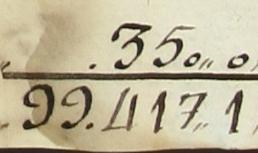 . 350,, 0
99.417,, 1